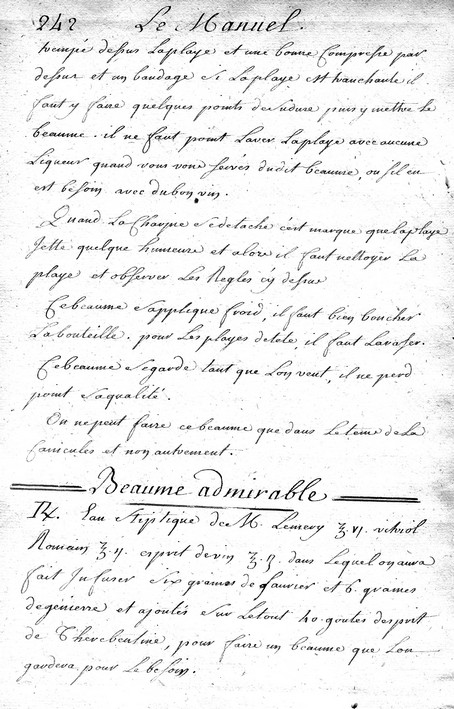 242 Le Manuel.
trempé dessus Laplaye et une bonne Compresse par
dessus et un bandage si Laplaye est tranchante il
faut y faire quelques points de suture puis y mettre Le
beaume. il ne faut point Laver Laplaye avec aucune
Liqueur quand vous vous servés dudit beaume, ou s'il en
est besoin avec dubon vin.
Quand La Charpie se detache c'est marque que laplaye
Jette quelque humeure et alors il faut nettoyer La
playe et observer Les Regles cy dessus
Cebeaume s'applique froid, il faut bien boucher
Labouteille. pour Les playes detete, il faut Laraser.
Cebeaume segarde tant que Lon veut, il ne perd
point saqualité.
On ne peut faire cebeaume que dans Letems de La
Canicules et non autrement.
Beaume admirable
℞. Eau stiptique de M. Lemery ʒ. vj. vitriol
Romain ʒ. ij. esprit devin ʒ. ij. dans Lequel on aura
fait Infuser six grames de Laurier et 6. grames
degenierre et ajoutés sur Letout 40. goutes desprit
de Therebentine, pour faire un beaume que Lon
gardera pour Le besoin.